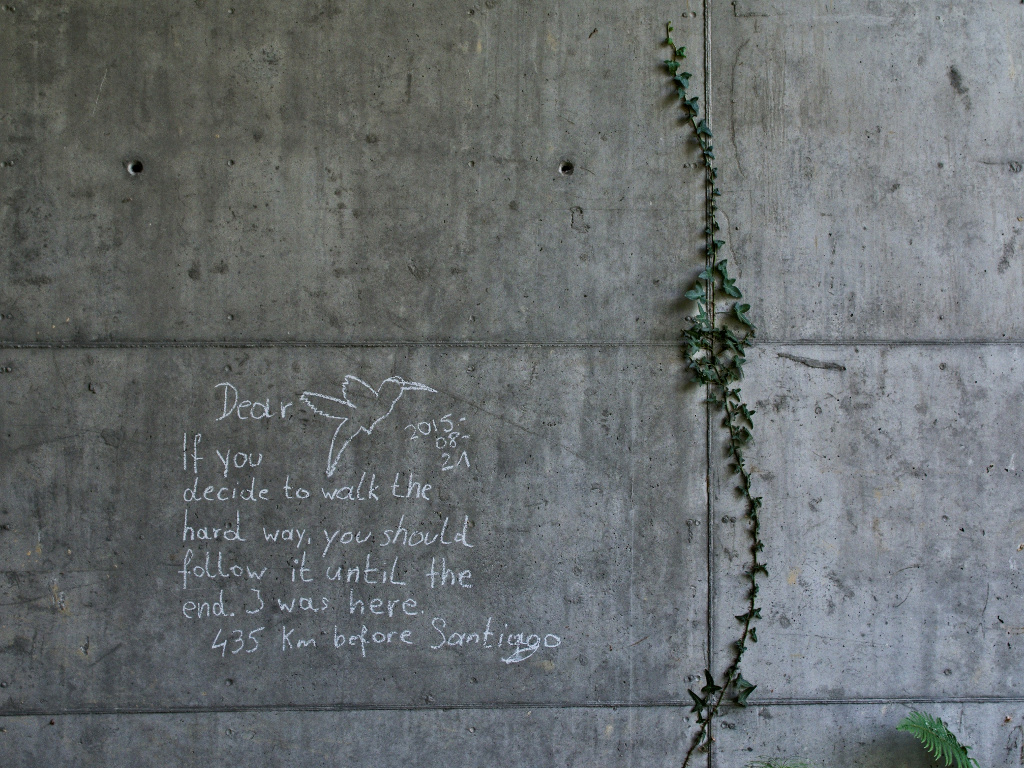 Dear
2015-
08-
21
If you
decide to walk the
hard way, you should
follow it until the
end. I was here.
435 Km before Santiago